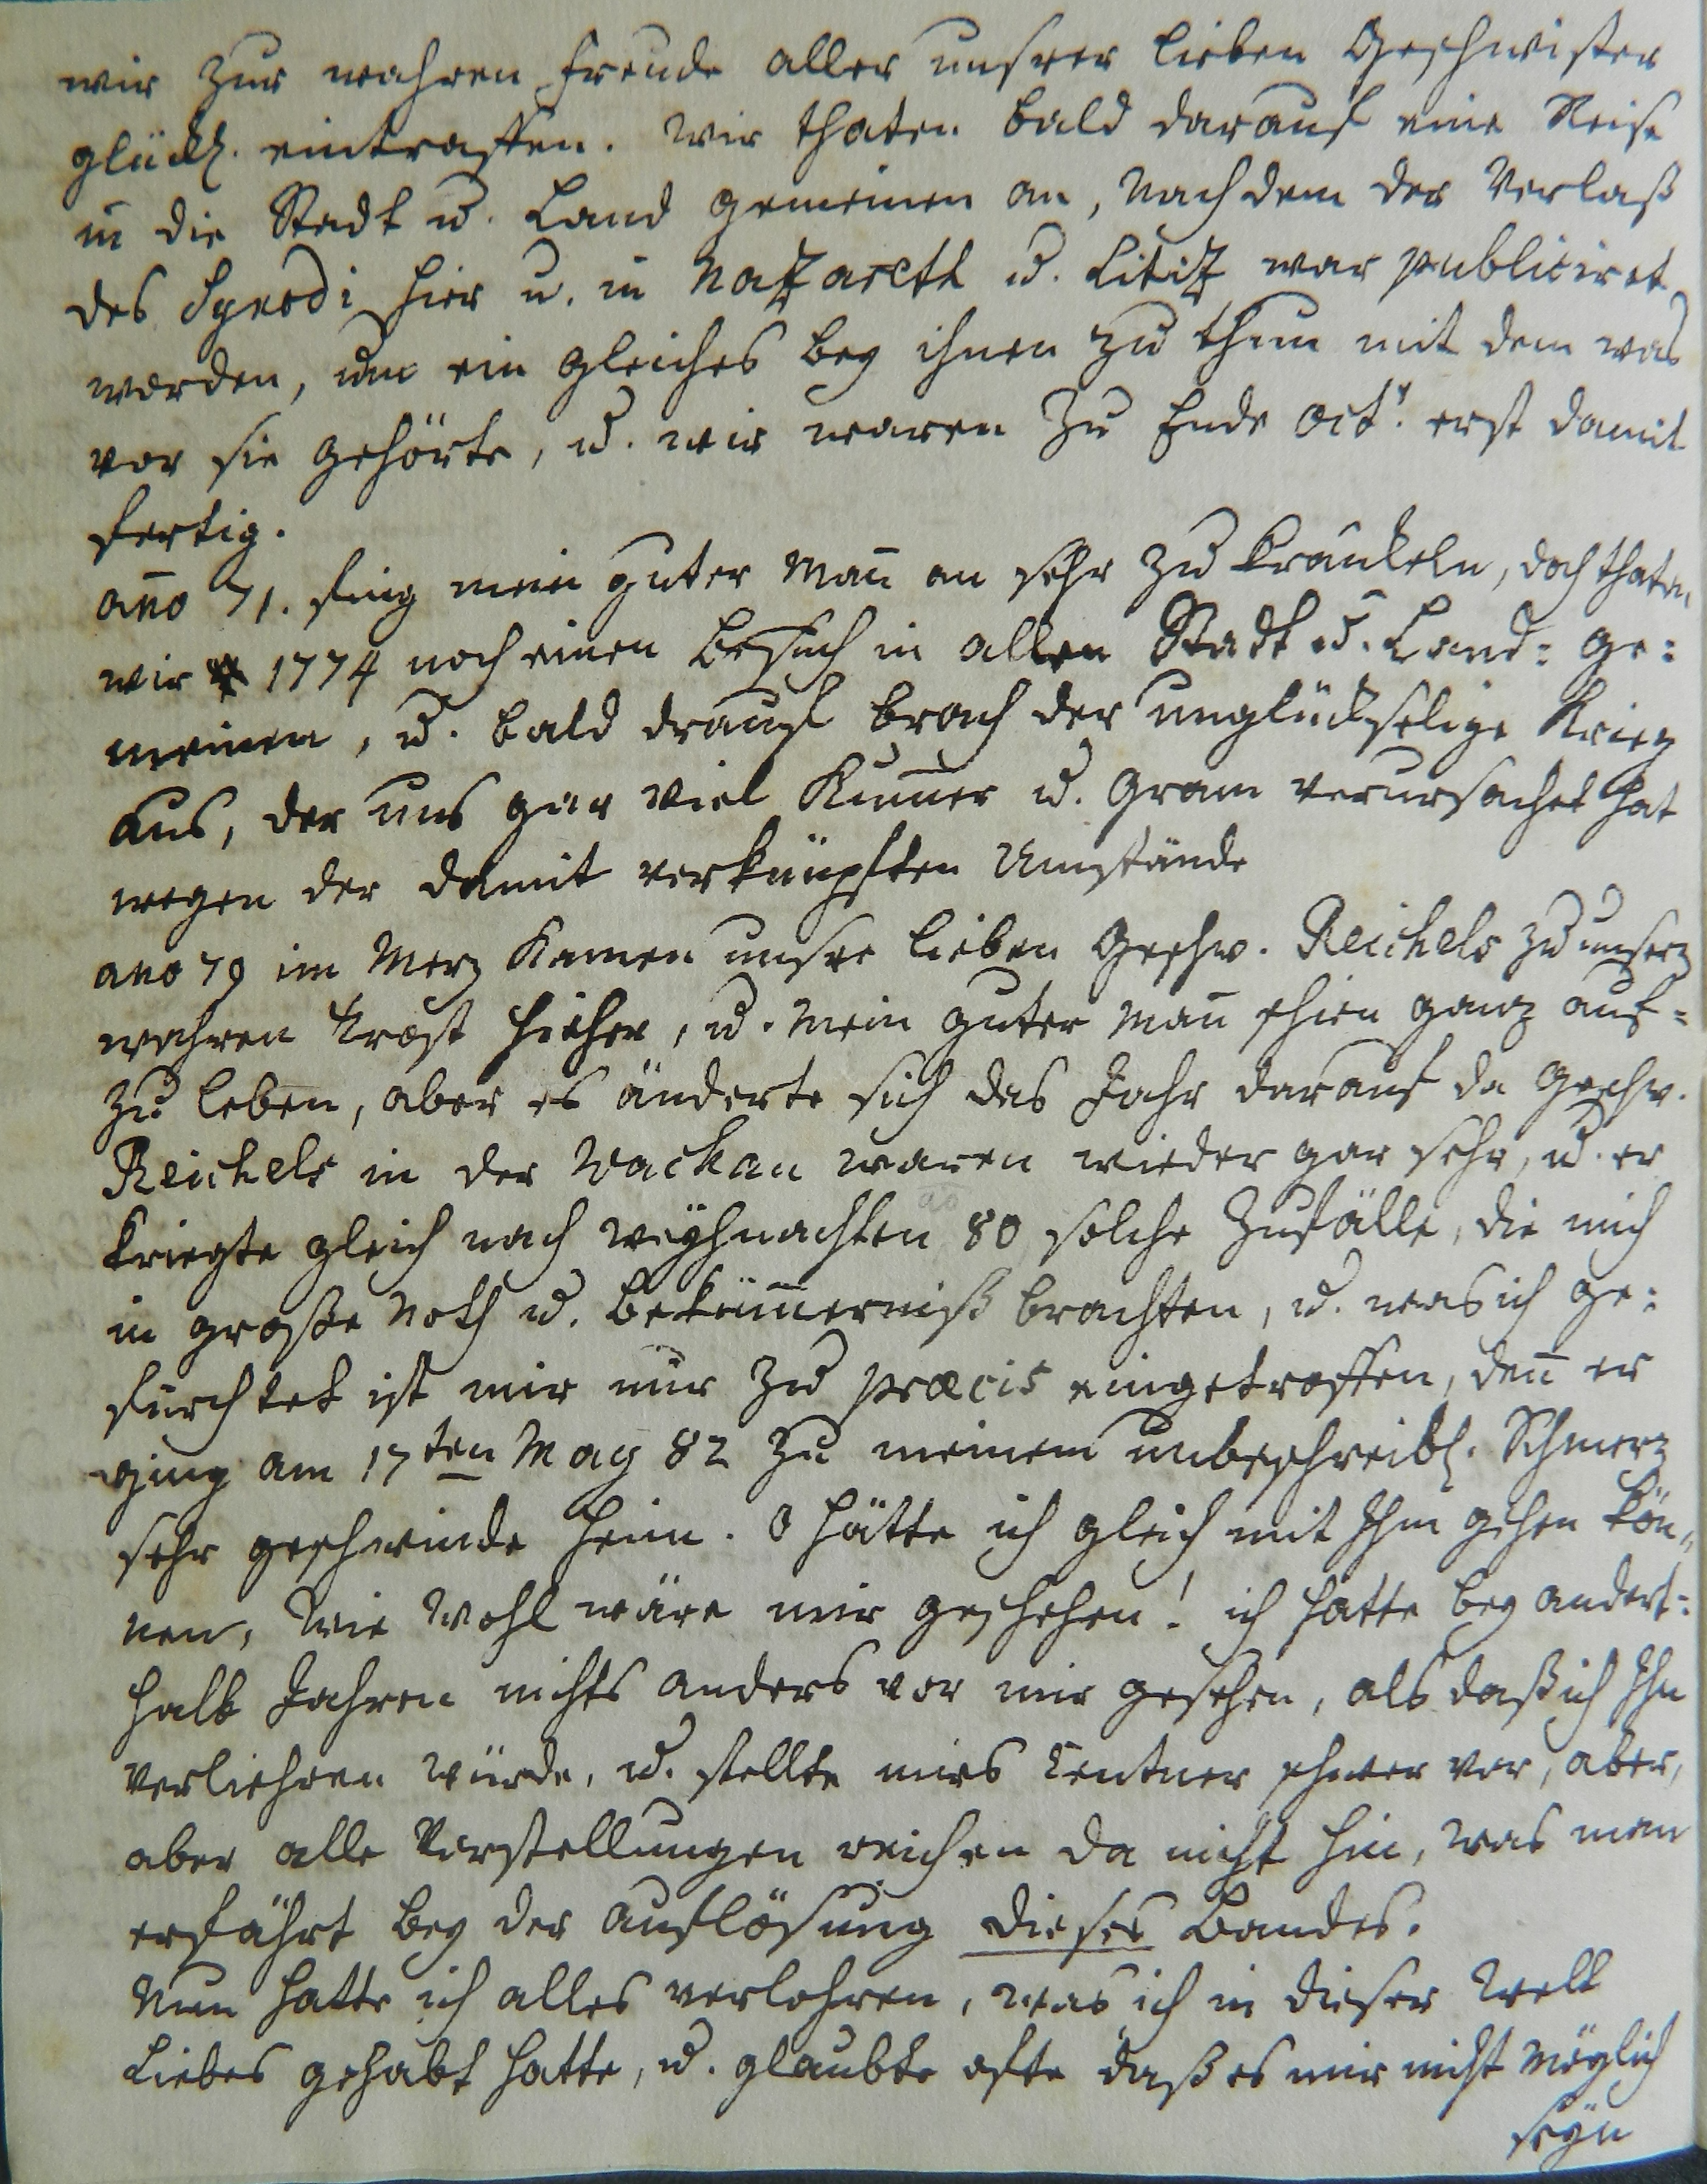 wir zur wahren Freude aller unsrer lieben Geschwister
glückl. eintraffen. Wir thaten bald darauf eine Reise
in die Stadt u. Land gemeinen an, nach dem der Verlaß
des Synodi hier u. in Nazareth u. Litiz war publiciret
worden, um ein gleiches bey ihnen zu thun mit dem was
vor sie gehörte, u. wir waren zu Ende Octr. erst damit
fertig.
año 71. fing mein guter Mañ an sehr zu kränkeln, doch thaten
wir 1774 noch einen Besuch in allen Stadt u. Land: Ge:
meinen, u. bald drauf brach der unglückselige Krieg
aus, der uns gar viel Kum̄er u. Gram verursachet hat
wegen der damit verknüpften Umstände
ano 79 im Merz kamen unsre lieben Geschw. Reichels zu unserm
wahren Trost hieher, u. mein guter Mañ schien ganz auf=
zu leben, aber es änderte sich das Jahr darauf da Geschw.
Reichels in der Wachau waren wieder gar sehr, u. er
kriegte gleich nach Weyhnachten 80 solche Zufälle, die mich
in große Noth u. Beküm̄erniß brachten, u. was ich ge:
fürchtet ist mir nur zu præcis eingetroffen, deñ er
ging am 17ten May 82 zu meinem unbeschreibl. Schmerz
sehr geschwinde heim. O hätte ich gleich mit Ihm gehen kön=
nen, wie wohl wäre mir geschehen! ich hatte bey andert=
halb Jahren nichts anders vor mir gesehen, als daß ich Ihn
verliehren würde, u. stellte mirs Centner schwer vor, aber,
aber alle Vorstellungen reichen da nicht hin, was man
erfährt bey der Auflösung dieses Bandes.
Nun hatte ich alles verlohren, was ich in dieser Welt
Liebes gehabt hatte, u. glaubte ofte daß es mir nicht möglich
seyn